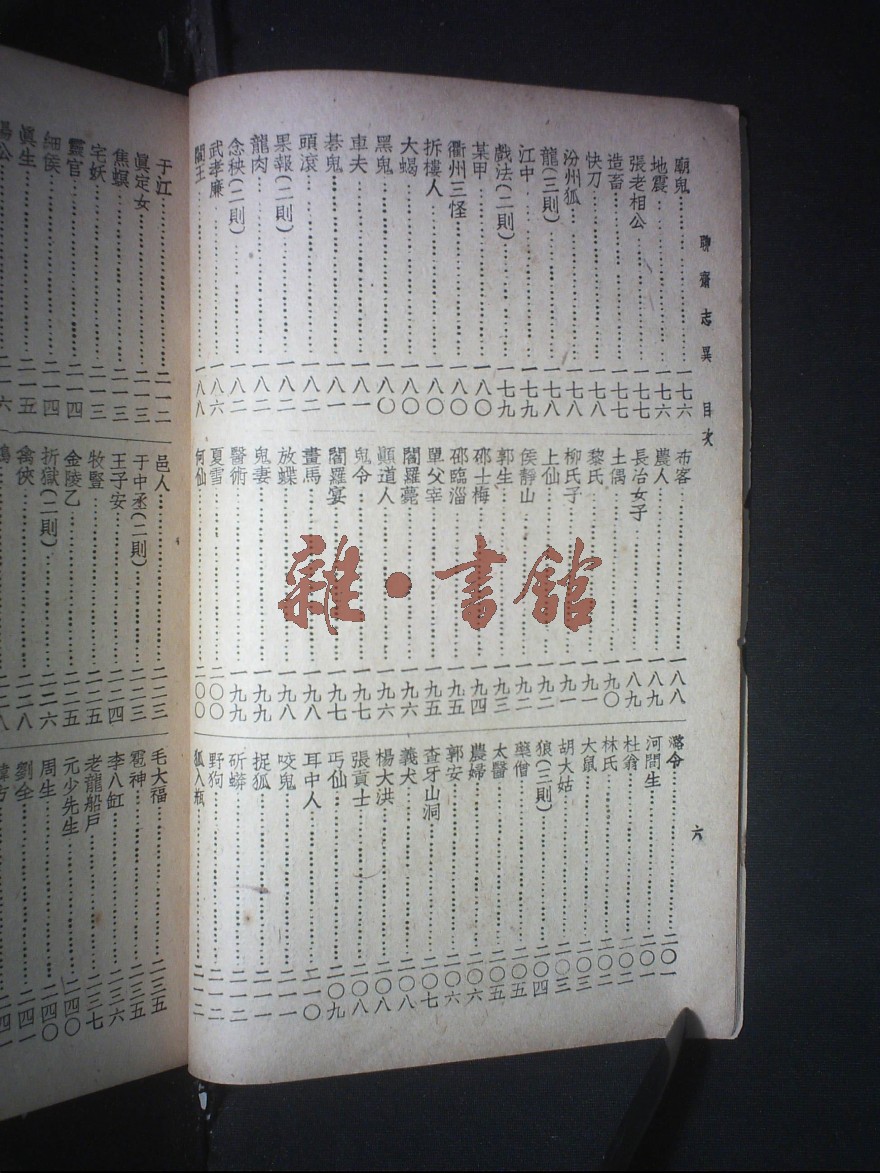 聊齋志異 目次
六
廟鬼……一七六
地震……一七六
張老相公……一七七
造畜……一七七
快刀……一七八
汾州狐……一七八
龍(三則)……一七八
江中……一七九
戲法(二則)……一七九
某甲……一八〇
衢州三怪……一八〇
拆樓人……一八〇
大蝎……一八〇
黑鬼……一八〇
車夫……一八一
碁鬼……一八一
頭滾……一八二
果報(二則)……一八二
龍肉……一八二
念秧(二則)……一八二
武孝廉……一八六
閻王……一八八
布客……一八八
農人……一八九
長治女子……一八九
土偶……一九〇
黎氏……一九一
柳氏子……一九一
上仙……一九二
侯靜山……一九二
郭生……一九三
邵士梅……一九四
邵臨淄……一九五
單父宰……一九五
閻羅薨……一九六
顚道人……一九六
鬼令……一九七
閻羅宴……一九七
畫馬……一九八
放蝶……一九八
鬼妻……一九九
醫術……一九九
夏雪……二〇〇
何仙……二〇〇
潞令……二〇一
河間生……二〇一
杜翁……二〇二
林氏……二〇二
大鼠……二〇三
胡大姑……二〇三
狼(三則)……二〇四
藥僧……二〇五
太醫……二〇五
農婦……二〇六
郭安……二〇六
查牙山洞……二〇七
義犬……二〇八
楊大洪……二〇八
張貢士……二〇八
丐仙……二〇九
耳中人……二一〇
咬鬼……二一一
捉狐……二一一
斫蟒……二一二
野狗……二一二
狐入瓶……二一二
于江……二一二
眞定女……二一三
焦螟……二一三
宅妖……二一三
靈官……二一四
細侯……二一四
眞生……二一五
邑人……二二三
于中丞(二則)……二二三
王子安……二二四
牧豎……二二五
金陵乙……二二五
折獄(二則)……二二六
禽俠……二二八
毛大福……二三五
雹神……二三五
李八缸……二三六
老龍船戶……二三七
元少先生……二四〇
周生……二四〇
劉全……二四一
雜·書館